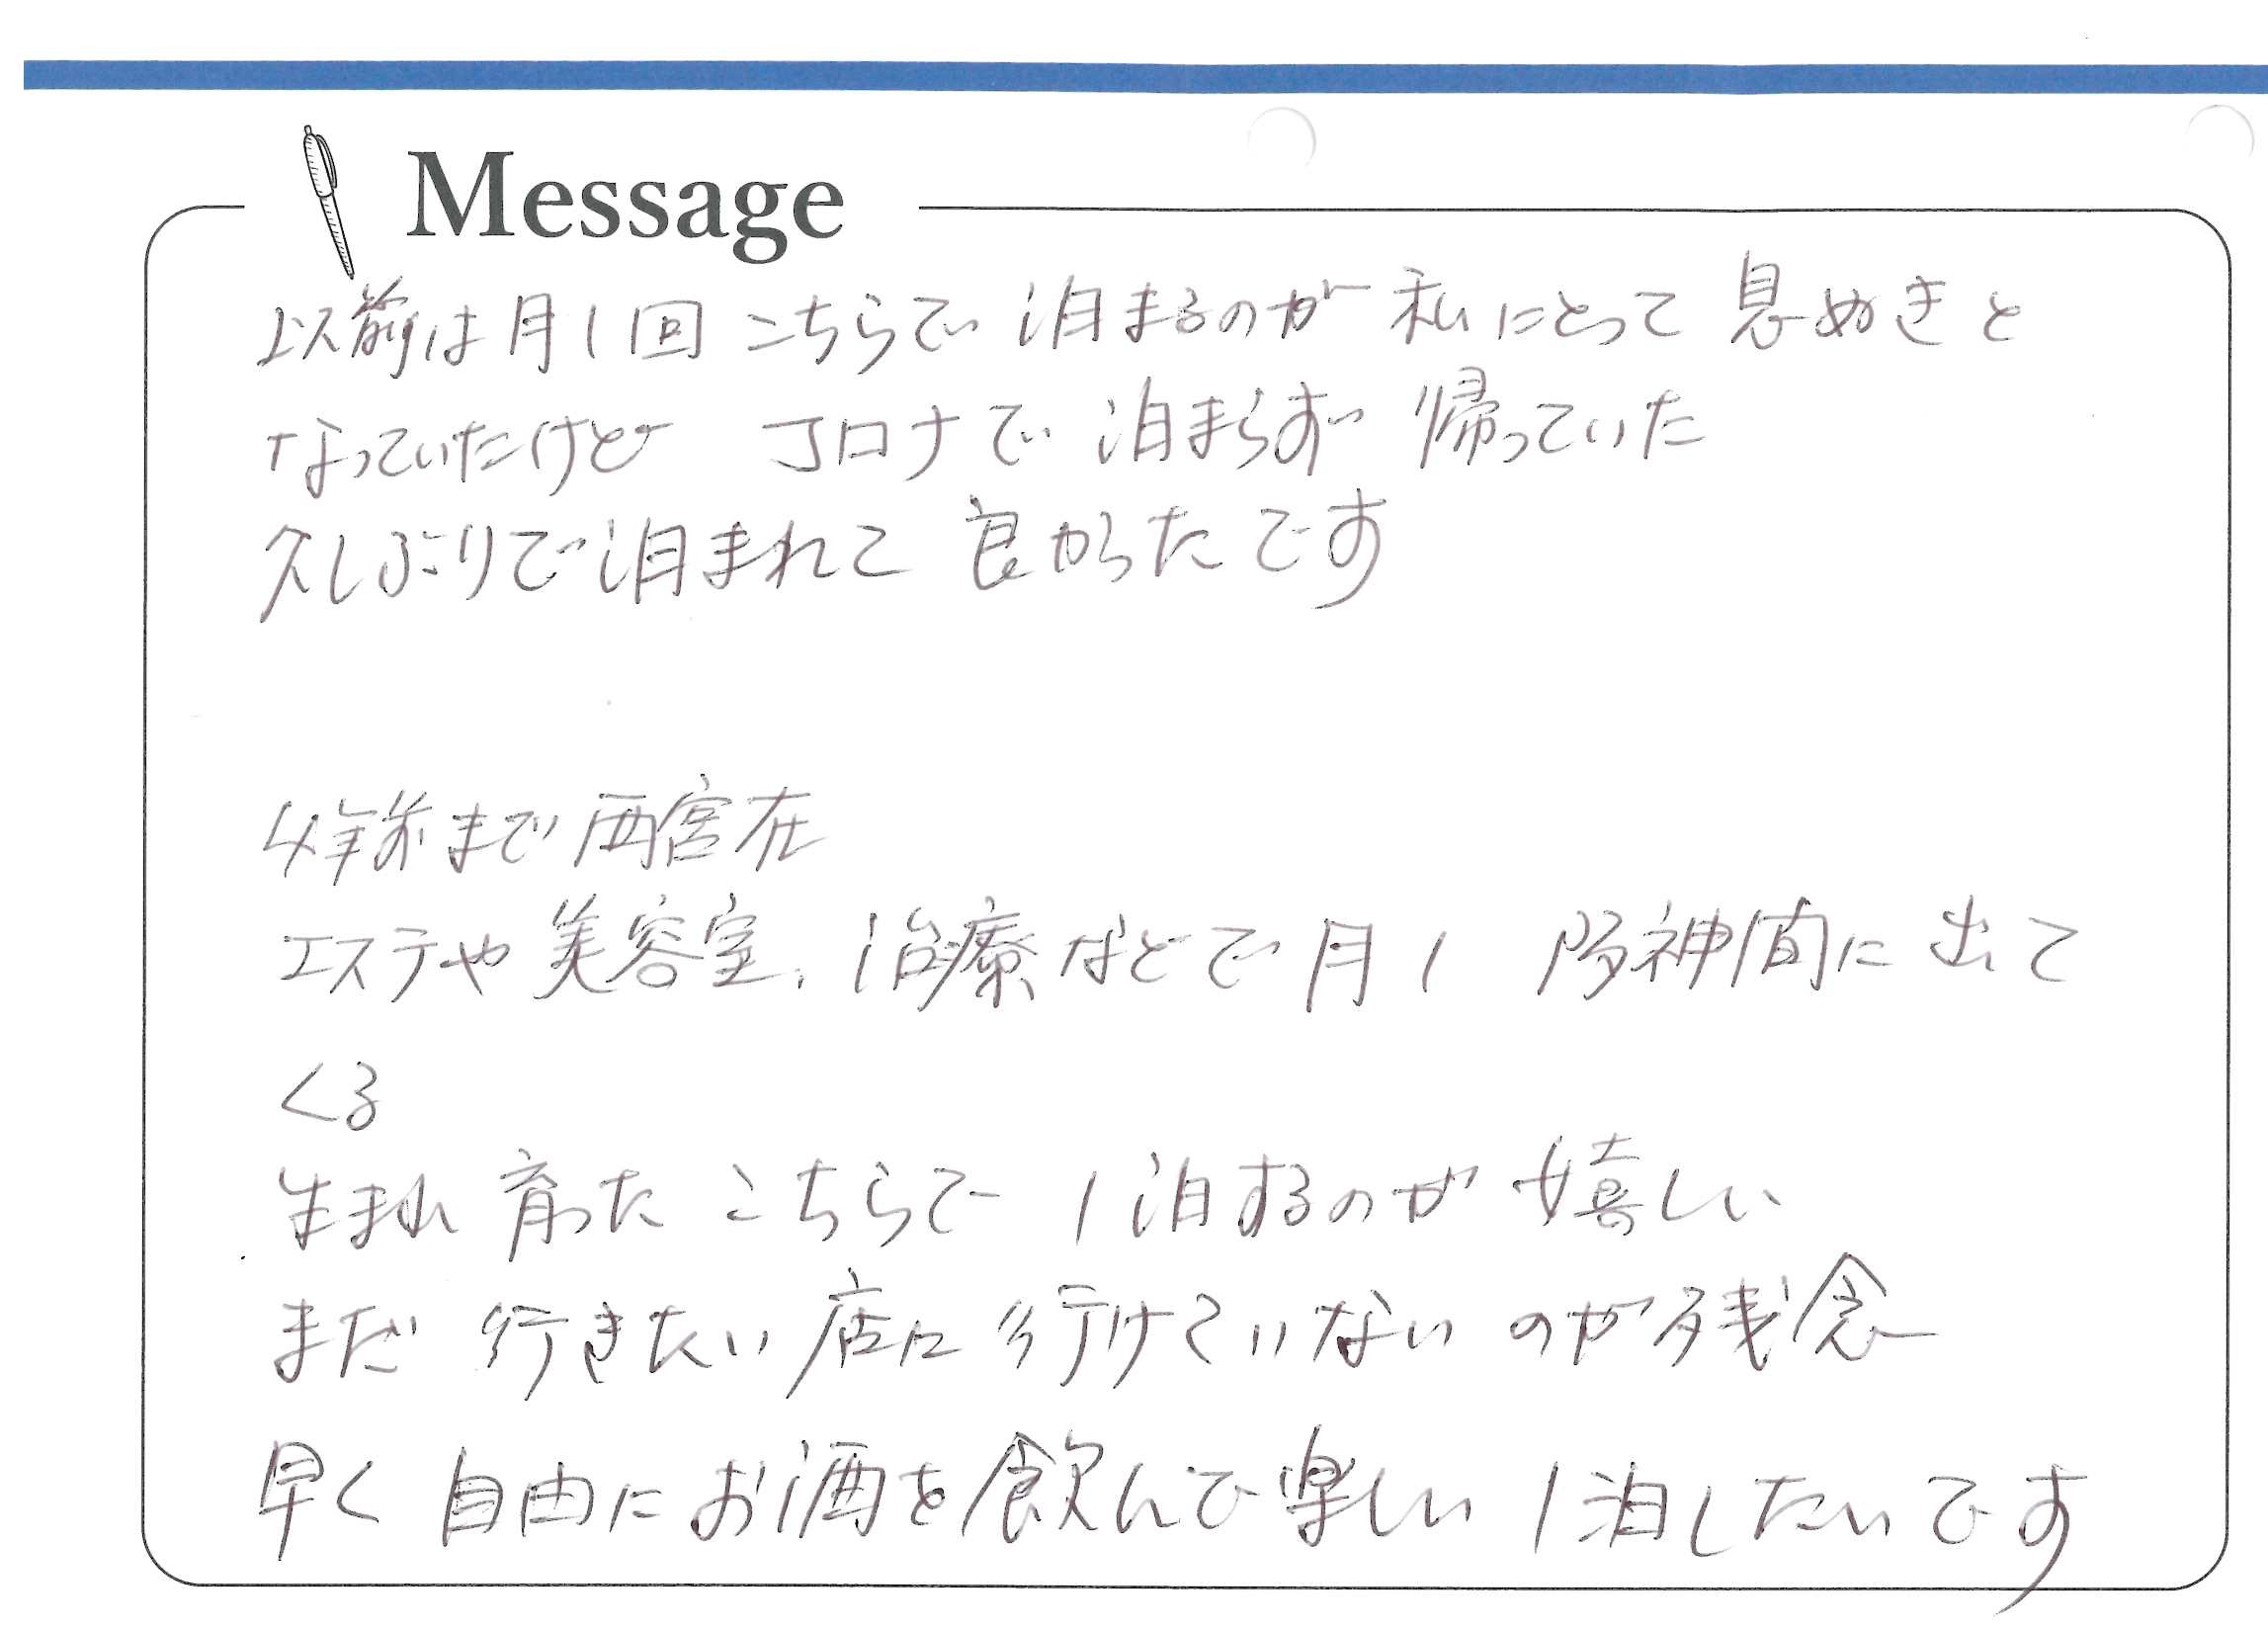 Message
以前は月1回 こちらで 泊まるのが 私にとって 息ぬきと
なっていたけど コロナで 泊まらず 帰っていた
久しぶりで泊まれて 良かったです
4年前まで西宮在
エステや美容室、治療などで月1 阪神間に出て
くる
生まれ 育った こちらで 1泊するのが 嬉しい
まだ 行きたい店に 行けていないのが残念
早く 自由にお酒を飲んで楽しい 1泊したいです